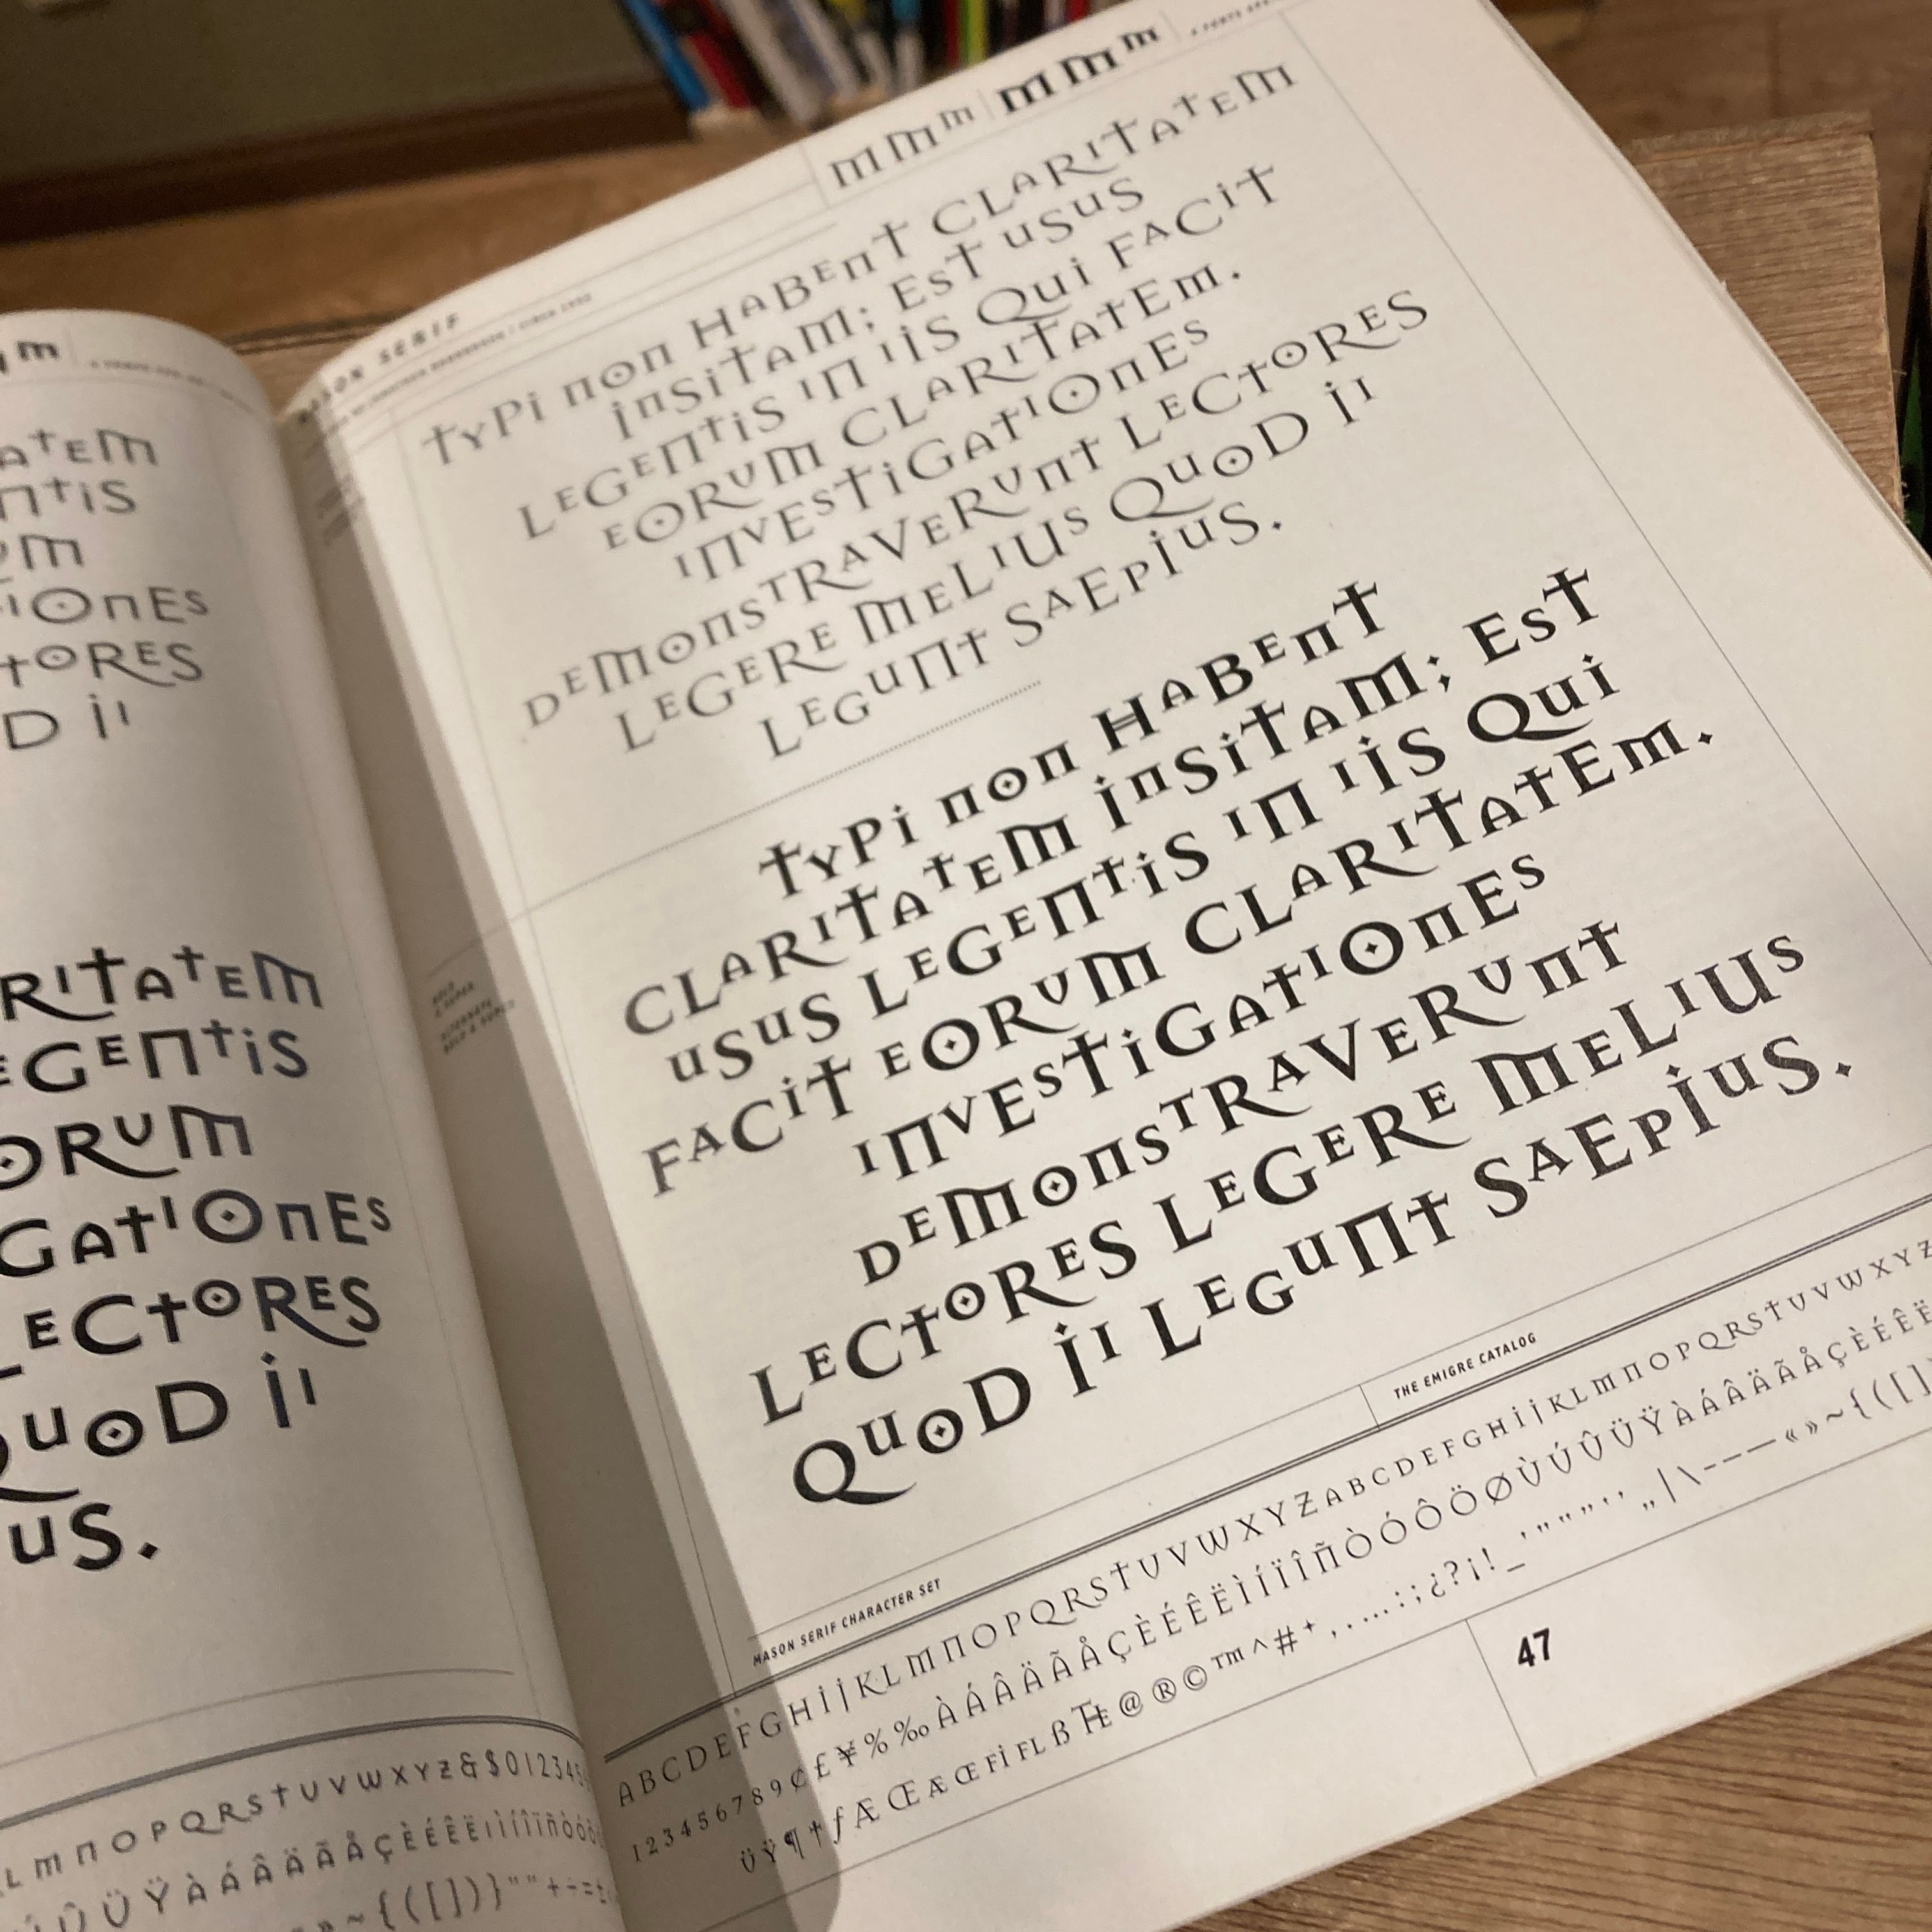 ATEM
NTIS
UM
IONES
TORES
D II
RITATEM
EGENTIS
ORUM
GATIONES
LECTORES
QUOD II
US.
L M N O P Q R S T U V W X Y Z & $ 0 1 2 3 4 5
Û Ü Ÿ À Á Â Ä Ã Å Ç È É Ê Ë
» ~ { ( [ ] ) }
M M M M M M
MASON SERIF
TYPI NON HABENT CLARITATEM
INSITAM; EST USUS
LEGENTIS IN IIS QUI FACIT
EORUM CLARITATEM.
INVESTIGATIONES
DEMONSTRAVERUNT LECTORES
LEGERE MELIUS QUOD II
LEGUNT SAEPIUS.
BOLD
& SUPER
ALTERNATE
BOLD & SUPER
TYPI NON HABENT
CLARITATEM INSITAM; EST
USUS LEGENTIS IN IIS QUI
FACIT EORUM CLARITATEM.
INVESTIGATIONES
DEMONSTRAVERUNT
LECTORES LEGERE MELIUS
QUOD II LEGUNT SAEPIUS.
THE EMIGRE CATALOG
MASON SERIF CHARACTER SET
A B C D E F G H I J K L M N O P Q R S T U V W X Y Z A B C D E F G H I J K L M N O P Q R S T U V W X Y Z
1 2 3 4 5 6 7 8 9 ¢ £ ¥ % ‰ À Á Â Ä Ã Å Ç È É Ê Ë Ì Í Ï Î Ñ Ò Ó Ô Ö Ø Ù Ú Û Ü Ÿ À Á Â Ä Ã Å Ç È É Ê Ë
Ü Ÿ ¶ † ƒ Æ Œ Æ Œ FI FL ß @ ® © ™ ^ # + , . … : ; ¿ ? ¡ ! _ ' " „ | \ - – — « » ~ { ( [ ]
47